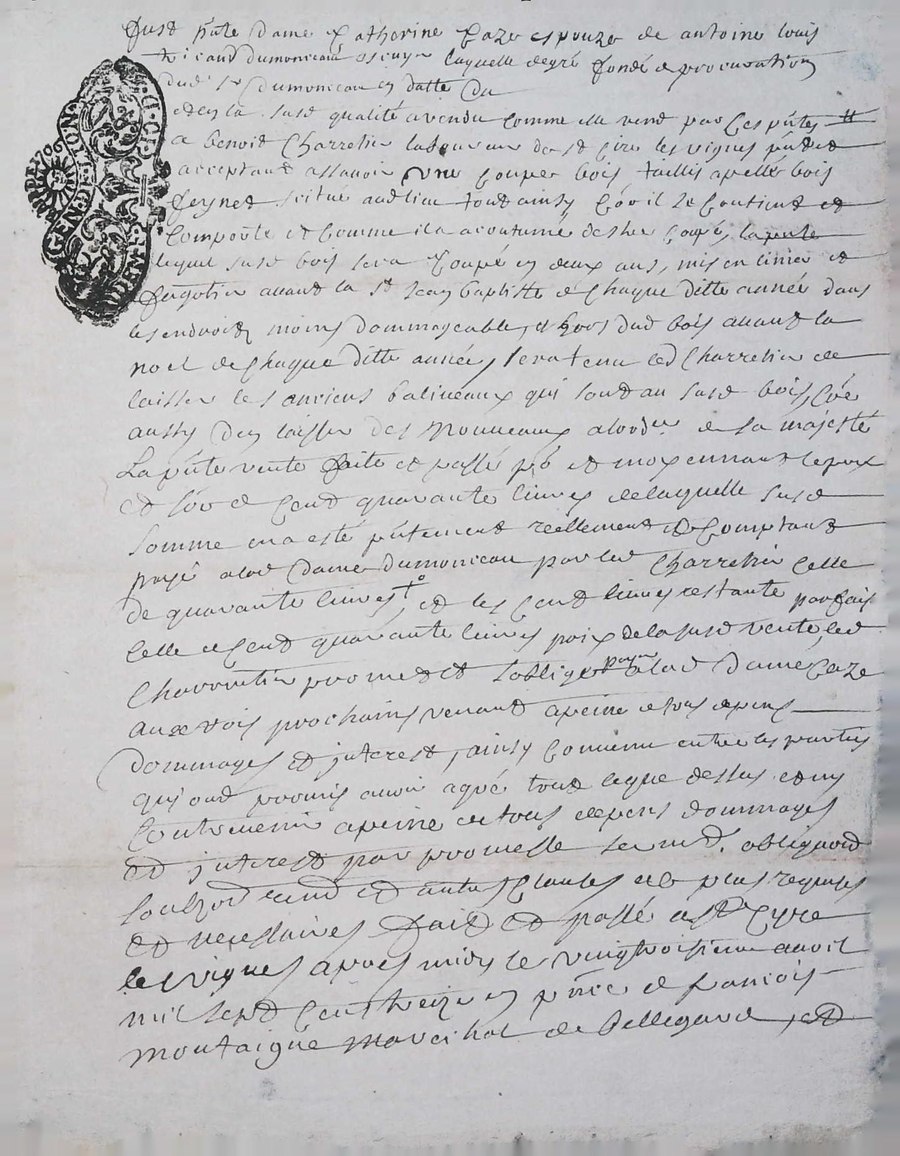 fust p̃nte dame Catherine Caze espouze de antoine louis
ricaud dumonceau escuyer laquelle degré fondé de procuration
dud sr dumonceau en datte du
et en la susd qualité a vendu comme elle vend par ces p̃ntes
a benoit Charretin laboureur de st Cire les vignes p̃nt et
acceptant assavoir une coupe bois taillis apellé bois
feynet scitué audlieu tout ainsy qu'il se contient et
comporte et comme il a acoutumé destre coupé, la p̃nte
lequel susd bois sera coupé en deux ans, mis en
fagotier avant la st Jean baptiste de chaque ditte année dans
les endroits moins dommageable, et hors dud bois avant la
noel de chaque ditte année, sera tenu led Charretin de
laisser les anciens balineaux qui sont au susd bois,
aussy den laisser des nouveaux a lordre de sa majesté
La p̃nte vente faite et passé et moyennant le prix
et de cent quarante livres de laquelle susd
somme en a esté p̃ntement reellement et comptant
payé a lad dame dumonceau par led Charretin celle
de quarante livres, et les cent livres restante parfais
celle de cent quarante livres prix de la susd vente, led
Charretin promet et soblige payer a lad dame Caze
aux rois prochains venant apeine de tous depens
dommages et interest, ainsy convenu entre les parties
qui ont promis avoir agré tout ceque dessus et ny
contrevenir apeine de tous depens dommages
et interest par promesse serm̃t obligaõns
et autres clauses de plus requises
et necessaires fait et passé a st Cyre
les vignes apres midy le vingtroisieme avril
mil sept cent treize en p̃nce de francois
montaigne marechal de bellegarde, et
GEN DE LYON